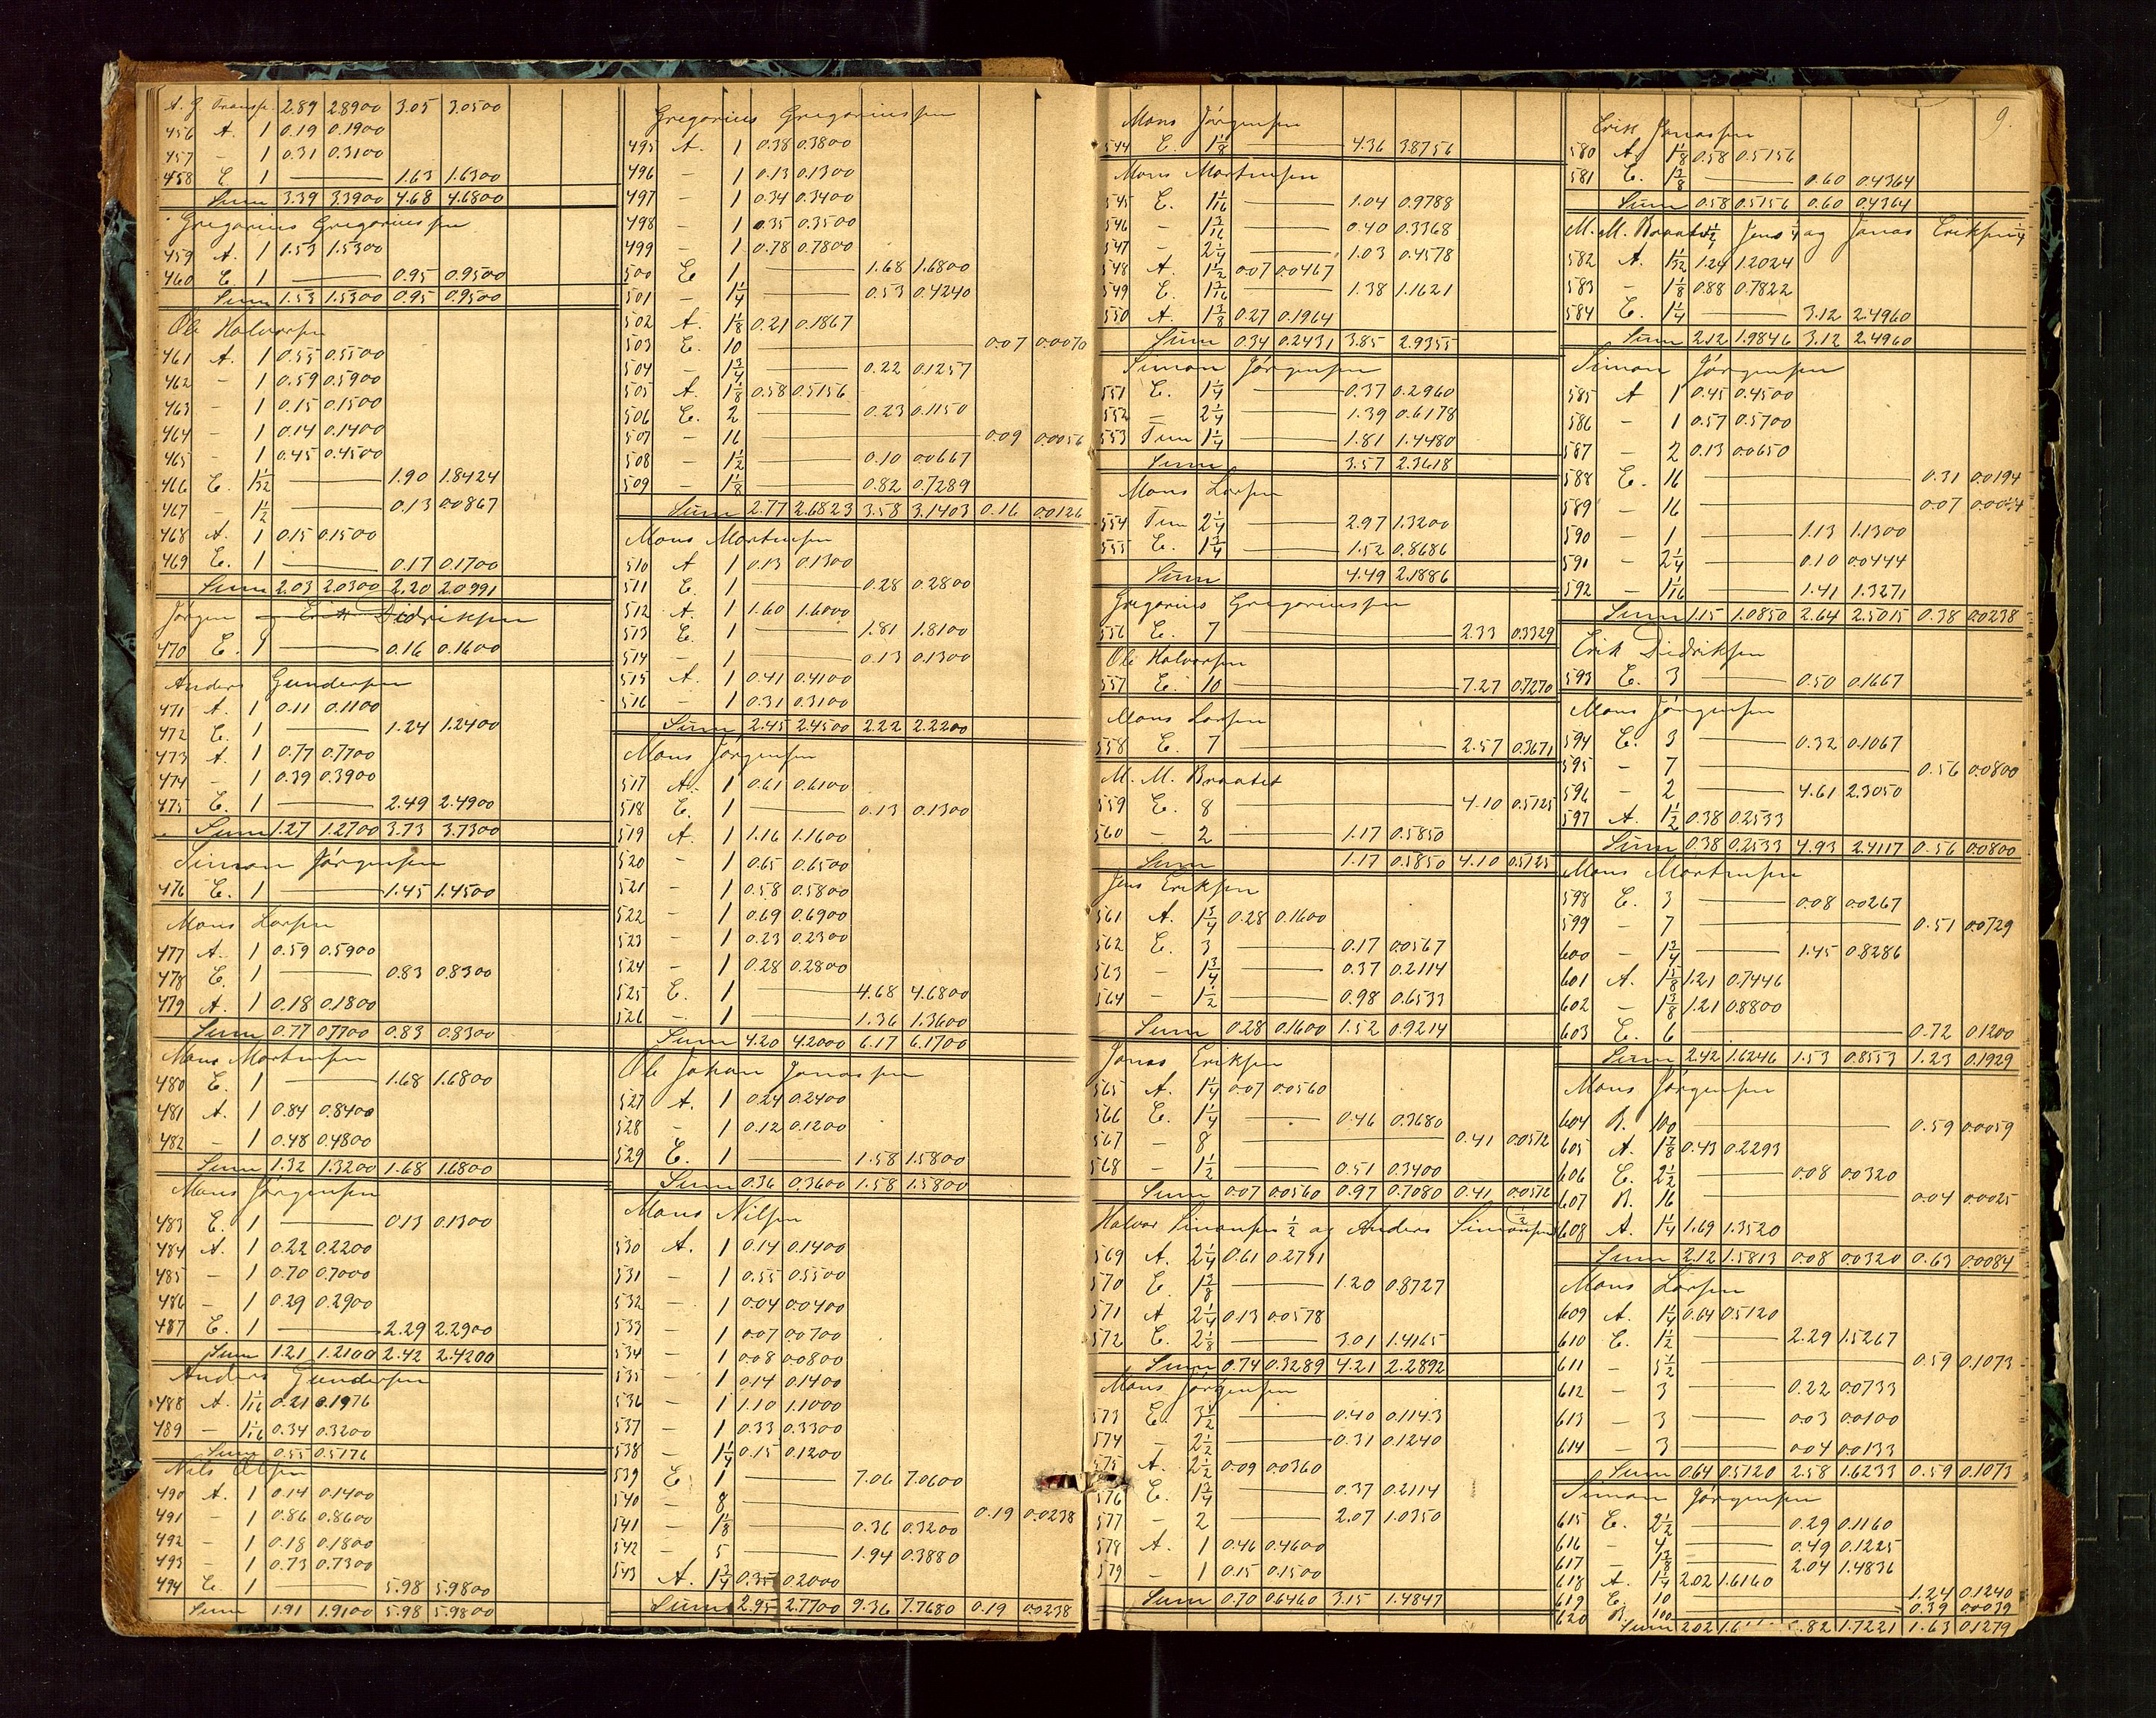 A. G. Transp. 2.89 2.8900 3.05 3.0500
456 A. 1 0.19 0.1900
457 - 1 0.31 0.3100
458 E. 1 — 1.63 1.6300
Sum 3.39 3.3900 4.68 4.6800
Gregorius Gregoriussen
459 A. 1 1.53 1.5300
460 E. 1 — 0.95 0.9500
Sum 1.53 1.5300 0.95 0.9500
Ole Halvorsen
461 A. 1 0.55 0.5500
462 - 1 0.59 0.5900
463 - 1 0.15 0.1500
464 - 1 0.14 0.1400
465 - 1 0.45 0.4500
466 E. 1 1/32 — 1.90 1.8424
467 - 1 1/2 — 0.13 0.0867
468 A. 1 0.15 0.1500
469 E. 1 — 0.17 0.1700
Sum 2.03 2.0300 2.20 2.0991
Jørgen og Erik Didriksen
470 E. 1 — 0.16 0.1600
Anders Gundersen
471 A. 1 0.11 0.1100
472 E. 1 — 1.24 1.2400
473 A. 1 0.77 0.7700
474 - 1 0.39 0.3900
475 E. 1 — 2.49 2.4900
Sum 1.27 1.2700 3.73 3.7300
Simon Jørgensen
476 E. 1 — 1.45 1.4500
Mons Larsen
477 A. 1 0.59 0.5900
478 E. 1 — 0.83 0.8300
479 A. 1 0.18 0.1800
Sum 0.77 0.7700 0.83 0.8300
Mons Martinsen
480 E. 1 — 1.68 1.6800
481 A. 1 0.84 0.8400
482 - 1 0.48 0.4800
Sum 1.32 1.3200 1.68 1.6800
Mons Jørgensen
483 E. 1 — 0.13 0.1300
484 A. 1 0.22 0.2200
485 - 1 0.70 0.7000
486 - 1 0.29 0.2900
487 E. 1 — 2.29 2.2900
Sum 1.21 1.2100 2.42 2.4200
Anders Gundersen
488 A. 1 1/16 0.21 0.1976
489 - 1 1/16 0.34 0.3200
Sum 0.55 0.5176
Nils Olsen
490 A. 1 0.14 0.1400
491 - 1 0.86 0.8600
492 - 1 0.18 0.1800
493 - 1 0.73 0.7300
494 E. 1 — 5.98 5.9800
Sum 1.91 1.9100 5.98 5.9800
Gregorius Gregoriussen
495 A. 1 0.38 0.3800
496 - 1 0.13 0.1300
497 - 1 0.34 0.3400
498 - 1 0.35 0.3500
499 - 1 0.78 0.7800
500 E 1 — 1.68 1.6800
501 - 1 1/4 — 0.53 0.4240
502 A. 1 1/8 0.21 0.1867
503 E. 10 — 0.07 0.0070
504 - 1 3/4 — 0.22 0.1257
505 A. 1 1/8 0.58 0.5156
506 E. 2 — 0.23 0.1150
507 - 16 — 0.09 0.0056
508 - 1 1/2 — 0.10 0.0667
509 - 1 1/8 — 0.82 0.7289
Sum 2.77 2.6823 3.58 3.1403 0.16 0.0126
Mons Martinsen
510 A 1 0.13 0.1300
511 E. 1 — 0.28 0.2800
512 A. 1 1.60 1.6000
513 E. 1 — 1.81 1.8100
514 - 1 — 0.13 0.1300
515 A. 1 0.41 0.4100
516 - 1 0.31 0.3100
Sum 2.45 2.4500 2.22 2.2200
Mons Jørgensen
517 A. 1 0.61 0.6100
518 E. 1 — 0.13 0.1300
519 A. 1 1.16 1.1600
520 - 1 0.65 0.6500
521 - 1 0.58 0.5800
522 - 1 0.69 0.6900
523 - 1 0.23 0.2300
524 - 1 0.28 0.2800
525 E. 1 — 4.68 4.6800
526 - 1 — 1.36 1.3600
Sum 4.20 4.2000 6.17 6.1700
Ole Johan Jonassen
527 A. 1 0.24 0.2400
528 - 1 0.12 0.1200
529 E. 1 — 1.58 1.5800
Sum 0.36 0.3600 1.58 1.5800
Mons Nilsen
530 A. 1 0.14 0.1400
531 - 1 0.55 0.5500
532 - 1 0.04 0.0400
533 - 1 0.07 0.0700
534 - 1 0.08 0.0800
535 - 1 0.14 0.1400
536 - 1 1.10 1.1000
537 - 1 0.33 0.3300
538 - 1 1/4 0.15 0.1200
539 E 1 — 7.06 7.0600
540 - 8 — 0.19 0.0238
541 - 1 1/8 — 0.36 0.3200
542 - 5 — 1.94 0.3880
543 A. 1 3/4 0.35 0.2000
Sum 2.95 2.7700 9.36 7.7680 0.19 0.0238
Mons Jørgensen
544 E. 1 1/8 — 4.36 3.8756
Mons Martinsen
545 E. 1 1/16 — 1.04 0.9788
546 - 1 3/16 — 0.40 0.3368
547 - 2 1/4 — 1.03 0.4578
548 A. 1 1/2 0.07 0.0467
549 E. 1 3/16 — 1.38 1.1621
550 A. 1 3/8 0.27 0.1964
Sum 0.34 0.2431 3.85 2.9355
Simon Jørgensen
551 E. 1 1/4 — 0.37 0.2960
552 - 2 1/4 — 1.39 0.6178
553 Tun 1 1/4 — 1.81 1.4480
Sum 3.57 2.3618
Mons Larsen
554 Tun 2 1/4 — 2.97 1.3200
555 E. 1 3/4 — 1.52 0.8686
Sum 4.49 2.1886
Gregorius Gregoriussen
556 E. 7 — 2.33 0.3329
Ole Halvorsen
557 E. 10 — 7.27 0.7270
Mons Larsen
558 E. 7 — 2.57 0.3671
M. M. Braatet
559 E. 8 — 4.10 0.5125
560 - 2 — 1.17 0.5850
Sum 1.17 0.5850 4.10 0.5125
Jens Eriksen
561 A. 1 3/4 0.28 0.1600
562 E. 3 — 0.17 0.0567
563 - 1 3/4 — 0.37 0.2114
564 - 1 1/2 — 0.98 0.6533
Sum 0.28 0.1600 1.52 0.9214
Jonas Eriksen
565 A. 1 1/4 0.07 0.0560
566 E. 1 1/4 — 0.46 0.3680
567 - 8 — 0.41 0.0512
568 - 1 1/2 — 0.51 0.3400
Sum 0.07 0.0560 0.97 0.7080 0.41 0.0512
Halvor Simonsen 1/2 og Anders Simonsen 1/2
569 A. 2 1/4 0.61 0.2711
570 E. 1 3/8 — 1.20 0.8727
571 A 2 1/4 0.13 0.0578
572 E. 2 1/8 — 3.01 1.4165
Sum 0.74 0.3289 4.21 2.2892
Mons Jørgensen
573 E. 3 1/2 — 0.40 0.1143
574 - 2 1/2 — 0.31 0.1240
575 A. 2 1/2 0.09 0.0360
576 E. 1 3/4 — 0.37 0.2114
577 - 2 — 2.07 1.0350
578 A. 1 0.46 0.4600
579 - 1 0.15 0.1500
Sum 0.70 0.6460 3.15 1.4847
9.
Erik Jonassen
580 A. 1 1/8 0.58 0.5156
581 E. 1 3/8 — 0.60 0.4364
Sum 0.58 0.5156 0.60 0.4364
M. M. Braatet 1/2 Jens 1/4 og Jonas Eriksen 1/4
582 A. 1 1/32 1.24 1.2024
583 - 1 1/8 0.88 0.7822
584 E. 1 1/4 — 3.12 2.4960
Sum 2.12 1.9846 3.12 2.4960
Simon Jørgensen
585 A 1 0.45 0.4500
586 - 1 0.57 0.5700
587 - 2 0.13 0.0650
588 E. 16 — 0.31 0.0194
589 - 16 — 0.07 0.0044
590 - 1 — 1.13 1.1300
591 - 2 1/4 — 0.10 0.0444
592 - 1 1/16 — 1.41 1.3271
Sum 1.15 1.0850 2.64 2.5015 0.38 0.0238
Erik Didriksen
593 E. 3 — 0.50 0.1667
Mons Jørgensen
594 E. 3 — 0.32 0.1067
595 - 7 — 0.56 0.0800
596 - 2 — 4.61 2.3050
597 A. 1 1/2 0.38 0.2533
Sum 0.38 0.2533 4.93 2.4117 0.56 0.0800
Mons Martinsen
598 E. 3 — 0.08 0.0267
599 - 7 — 0.51 0.0729
600 - 1 3/4 — 1.45 0.8286
601 A. 1 5/8 1.21 0.7446
602 - 1 3/8 1.21 0.8800
603 E. 6 — 0.72 0.1200
Sum 2.42 1.6246 1.53 0.8553 1.23 0.1929
Mons Jørgensen
604 R. 100 — 0.59 0.0059
605 A. 1 7/8 0.43 0.2293
606 E. 2 1/2 — 0.08 0.0320
607 R. 16 — 0.04 0.0025
608 A. 1 1/4 1.69 1.3520
Sum 2.12 1.5813 0.08 0.0320 0.63 0.0084
Mons Larsen
609 A. 1 1/4 0.64 0.5120
610 E. 1 1/2 2.29 1.5267
611 - 5 1/2 0.59 0.1073
612 - 3 0.22 0.0733
613 - 3 — 0.03 0.0100
614 - 3 — 0.04 0.0133
Sum 0.64 0.5120 2.58 1.6233 0.59 0.1073
Simon Jørgensen
615 E. 2 1/2 — 0.29 0.1160
616 - 4 — 0.49 0.1225
617 - 1 3/8 — 2.04 1.4836
618 A. 1 1/4 2.02 1.6160
619 E. 10 — 1.24 0.1240
620 R. 100 — 0.39 0.0039
Sum 2.02 1.6 .82 1.7221 1.63 0.1279